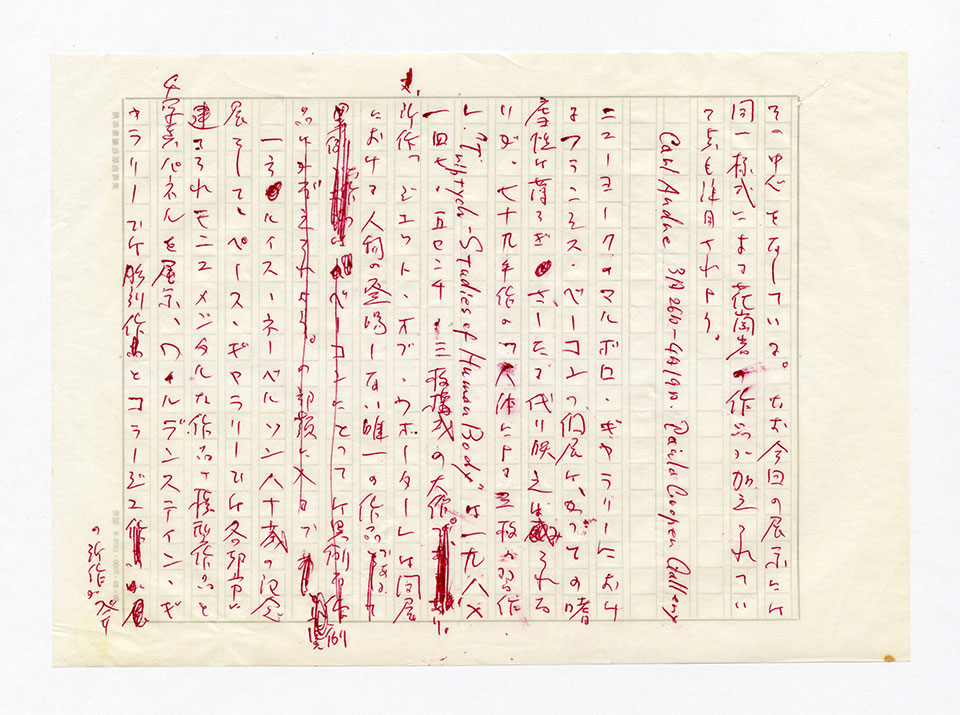 その中心をなしている。なお今回の展示には
同一様式による花崗岩の作品が加えられてい
て点も注目されよう。
Carl Andre 3月26日-4月19日. Paula Cooper Gallery
ニューヨークのマルボロ・ギャラリーにおけ
るフランシス・ベーコンの個展は、かつての嗜
虐性は薄らぎ、さした代り映えは られる
いが、七十九年作の「人体による三枚の習作
」"Triptych-Studies of Human Body" は一九八×
一四七・五センチ 三枚構成の大作
新作「ジェット・オブ・ウォーター」は同展
における人物の登場しない唯一の作品である
ベーコンにとっては異例
の部類に入る
一方ルイス・ネーベルソン八十歳の記念
展として、ペース・ギャラリーでは各都市に
建てられたモニュメンタルな作品の模型作品と
写真パネルを展示、ワイルデンスティン・ギ
ャラリーでは彫刻作品とコラージュ作
の新作が